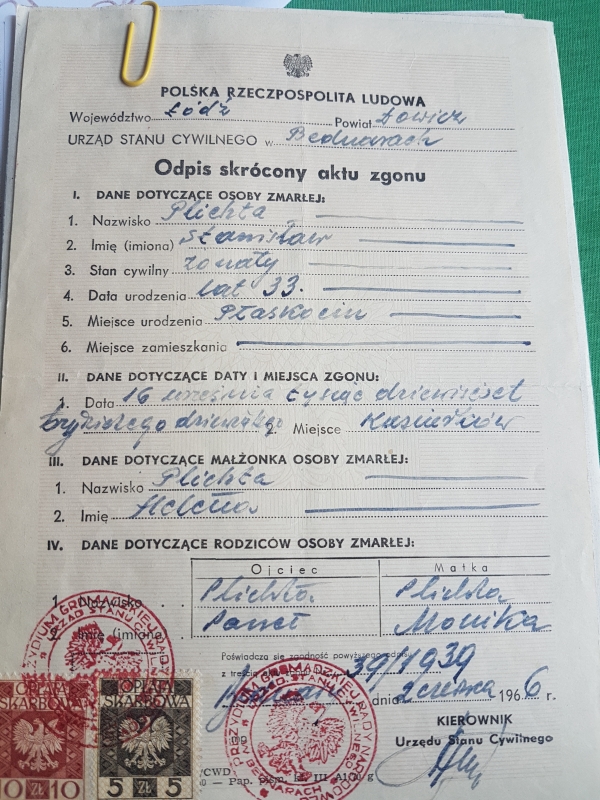 POLSKA RZECZPOSPOLITA LUDOWA
Województwo Łódź Powiat Łowicz
URZĄD STANU CYWILNEGO w Bednarach
Odpis skrócony aktu zgonu
I. DANE DOTYCZĄCE OSOBY ZMARŁEJ:
1. Nazwisko Plichta
2. Imię (imiona) Stanisław
3. Stan cywilny żonaty
4. Data urodzenia lat 33.
5. Miejsce urodzenia Płaskocin
6. Miejsce zamieszkania
II. DANE DOTYCZĄCE DATY I MIEJSCA ZGONU:
1. Data 16 września tysiąc dziewięćset
trzydziestego dziewiątego 2. Miejsce
III. DANE DOTYCZĄCE MAŁŻONKA OSOBY ZMARŁEJ:
1. Nazwisko Plichta
2. Imię Helena
IV. DANE DOTYCZĄCE RODZICÓW OSOBY ZMARŁEJ:
Ojciec Matka
1. Nazwisko Plichta Plichta
2. Imię (imiona) Paweł Monika
Poświadcza się zgodność powyższego odpisu
z treścią 39/1939
dnia 2 czerwca 1966 r.
KIEROWNIK
Urzędu Stanu Cywilnego
PREZYDIUM GROMADZKIEJ RADY NARODOWEJ
URZĄD STANU CYWILNEGO
W BEDNARACH
OPŁATA SKARBOWA
10 ZŁ 10
OPŁATA SKARBOWA
5 ZŁ 5